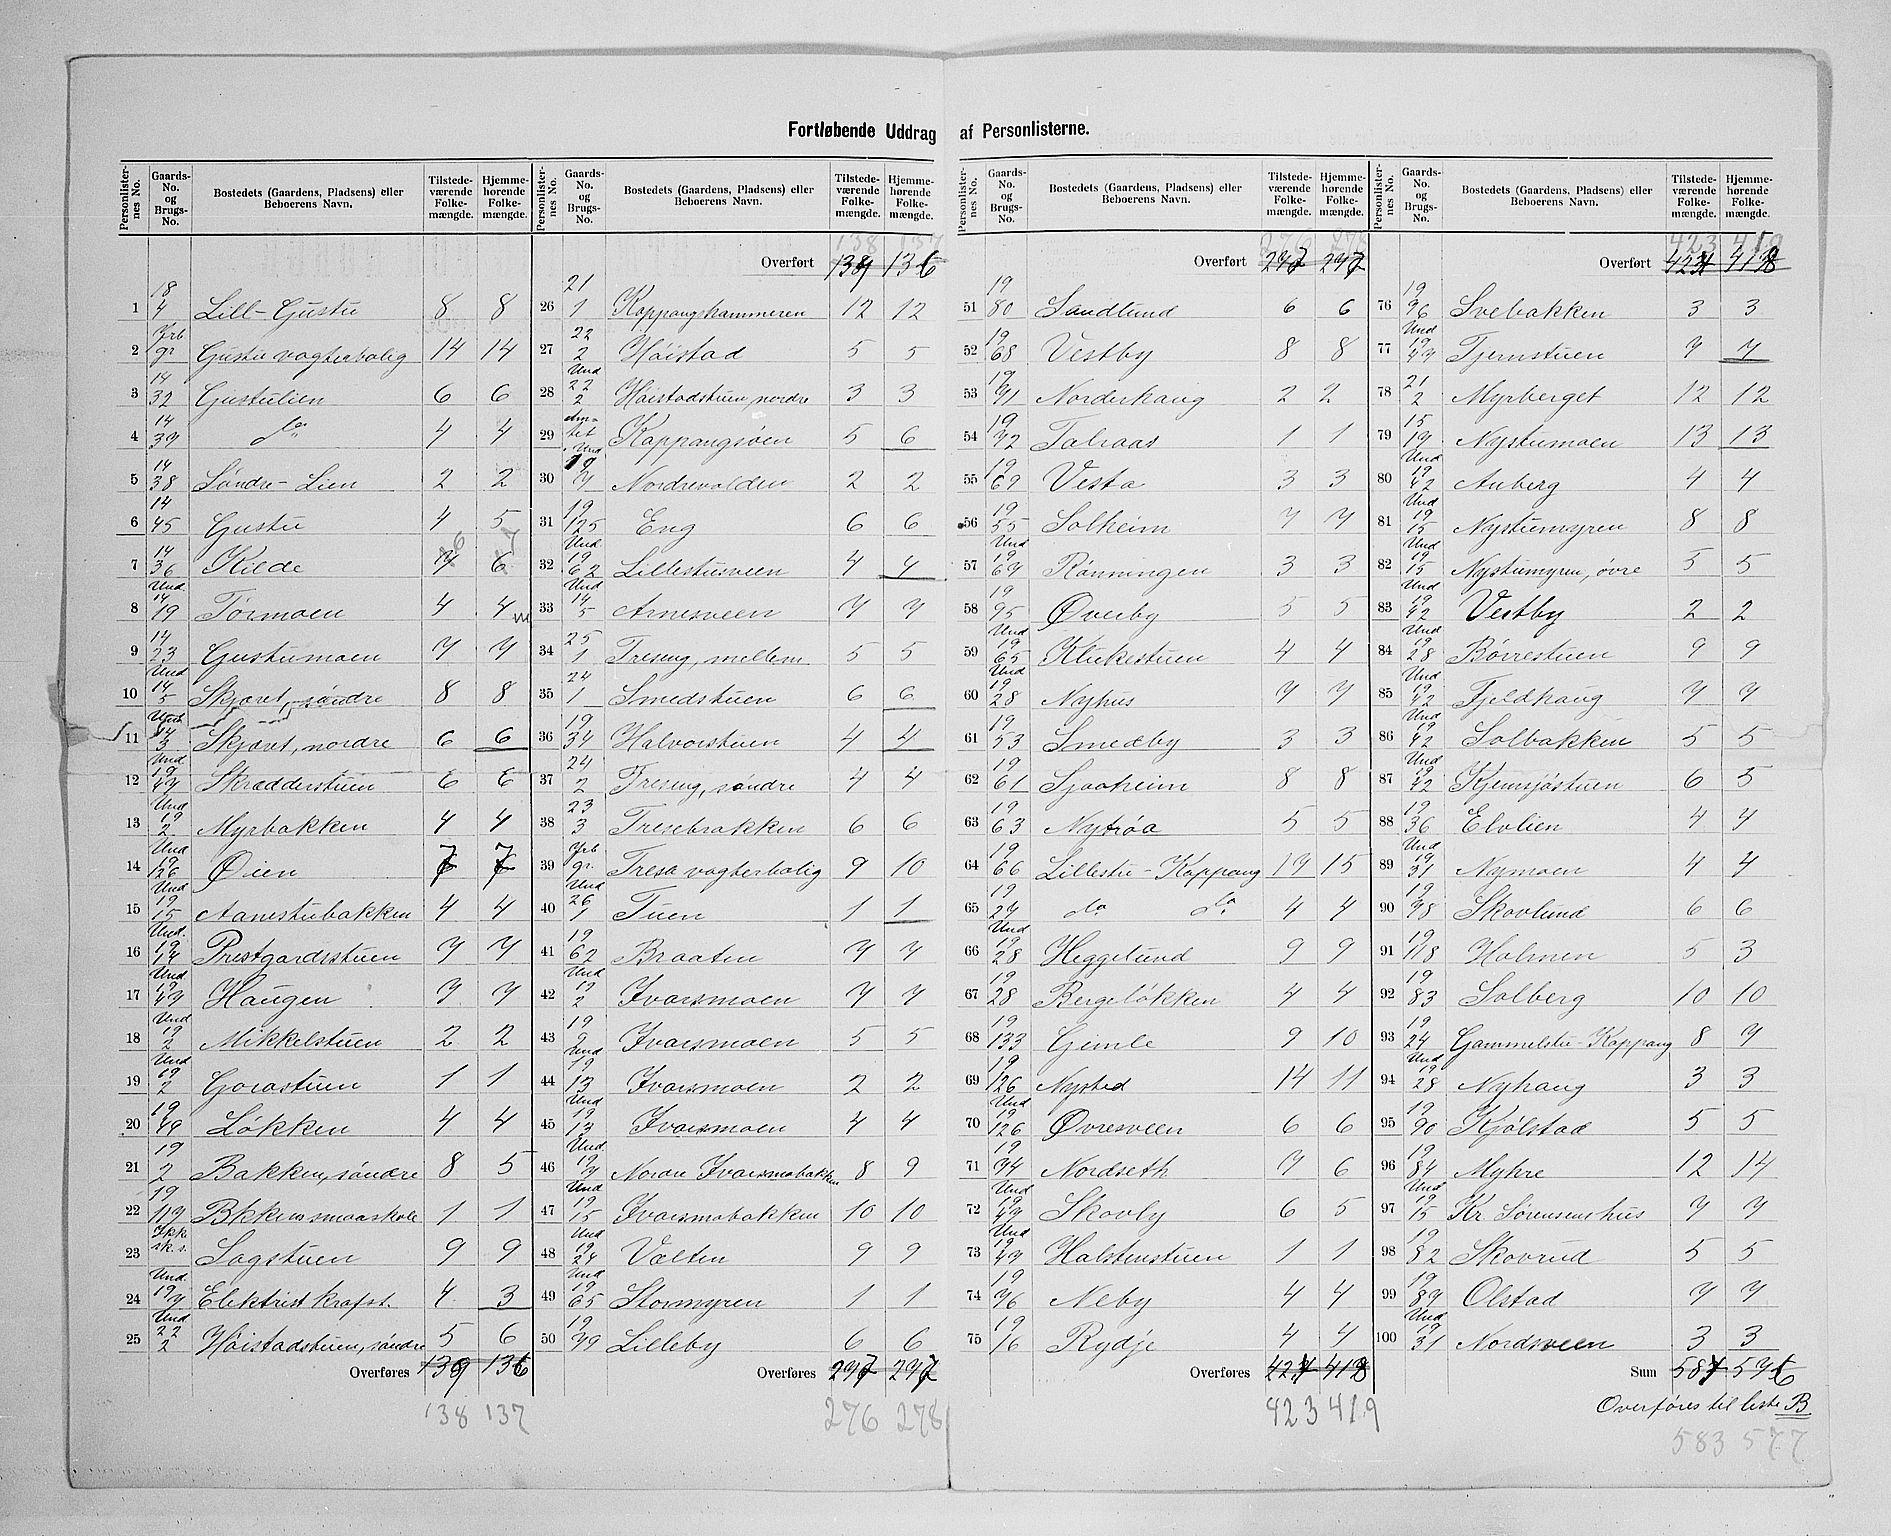 Fortløbende Uddrag af Personlisterne.
Personlister-nes No. | Gaards-No. og Brugs-No. | Bostedets (Gaardens, Pladsens) eller Beboerens Navn. | Tilstede-værende Folke-mængde. | Hjemme-hørende Folke-mængde.
1 18/4 Lill-Gustu 8 8
2 Jrb gr Gustu vogterbolig 14 14
3 14/32 Gustulien 6 6
4 14/37 do 4 4
5 14/38 Søndre-Lien 2 2
6 14/45 Gustu 4 5
7 14/36 Kilde 6
8 Und. 14/19 Tørmoen 4 4
9 14/23 Gustumoen 7 7
10 Und 14/5 Skjæret, søndre 8 8
11 Und. 14/3 Skjæret, nordre 6 6
12 Und 19/47 Skrædderstuen 6 6
13 Und 19/2 Myrbakken 4 4
14 Und 19/126 Øien 7 7
15 Und 19/15 Aanestubakken 4 4
16 Und. 19/14 Prestgardsstuen 7 7
17 Und 19/49 Haugen 7 7
18 Und 19/2 Mikkelstuen 2 2
19 Und 19/2 Gorastuen 1 1
20 19/49 Løkken 4 4
21 19/2 Bakken, søndre 8 5
22 19/119 Bkkens smaaskole 1 1
23 sk.s. Sagstuen 9 9
24 Und. 19/7 Elektrist krafst. 4 3
25 Und 22/2 Høistadstuen, søndre 5 6
Overføres 139 136
138 137
Personlister-nes No. | Gaards-No. og Brugs-No. | Bostedets (Gaardens, Pladsens) eller Beboerens Navn. | Tilstede-værende Folke-mængde. | Hjemme-hørende Folke-mængde.
138 137
Overført 139 136
26 21/1 Koppangskammeren 12 12
27 22/2 Høistad 5 5
28 Und 22/2 Høistadstuen, nordre 3 3
29 Koppangsøen 5 6
30 Und 19/7 Nordrevolden 2 2
31 19/125 Eng 6 6
32 Und 19/62 Lillestusveen 4 4
33 Und 14/5 Arnesveen 7 7
34 25/1 Treseng, mellem 5 5
35 24/1 Smedstuen 6 6
36 19/34 Halvorstuen 4 4
37 24/2 Treseng, søndre 4 4
38 23/3 Tresebrakken 6 6
39 Jrb gr. Tresa vogterbolig 9 10
40 Und 26/1 Tuen 1 1
41 19/62 Braaten 7 7
42 Und 19/2 Ivarsmoen 7 7
43 19/2 Ivarsmoen 5 5
44 Und 19/13 Ivarsmoen 2 2
45 Und 19/13 Ivarsmoen 4 4
46 Und. 19/7 Nordre Ivarsmobakken 8 9
47 Und 19/15 Ivarsmobakken 10 10
48 Und 19/24 Volten 9 9
49 Und 19/65 Stormyren 1 1
50 19/79 Lilleby 6 6
Overføres 297 297
276 278
Personlister-nes No. | Gaards-No. og Brugs-No. | Bostedets (Gaardens, Pladsens) eller Beboerens Navn. | Tilstede-værende Folke-mængde. | Hjemme-hørende Folke-mængde.
276 278
Overført 297 297
51 19/80 Sandlund 6 6
52 19/68 Vestby 8 8
53 19/91 Norderhaug 2 2
54 19/72 Talraas 1 1
55 19/69 Vesta 3 3
56 19/55 Solheim 7 7
57 Und 19/67 Rønningen 3 3
58 19/95 Øverby 5 5
59 Und 19/65 Klukestuen 4 4
60 Und 19/28 Nyhus 7 7
61 19/53 Smedby 3 3
62 19/61 Sjaaheim 8 8
63 19/63 Nytrøa 5 5
64 19/66 Lillestu-Koppang 17 15
65 19/27 do do 4 4
66 Und 19/28 Heggelund 9 9
67 19/28 Bergeløkken 4 4
68 19/133 Gimle 9 10
69 19/126 Nysted 14 11
70 Und 19/126 Øvresveen 6 6
71 19/94 Nordseth 7 6
72 Und 19/49 Skovly 6 5
73 Und 19/49 Halstenstuen 1 1
74 19/76 Neby 4 4
75 19/16 Rydje 4 4
Overføres 424 418
423 419
Personlister-nes No. | Gaards-No. og Brugs-No. | Bostedets (Gaardens, Pladsens) eller Beboerens Navn. | Tilstede-værende Folke-mængde. | Hjemme-hørende Folke-mængde.
423 419
Overført 424 418
76 19/96 Svebakken 3 3
77 Und 19/47 Tjernstuen 7 7
78 21/2 Myrberget 12 12
79 15/19 Nystumoen 13 13
80 Und 19/42 Auberg 4 4
81 Und 19/15 Nystumyren 8 8
82 Und 19/15 Nystumyren, øvre 5 5
83 Und 19/42 Vestby 2 2
84 Und 19/28 Børrestuen 9 9
85 Und 19/42 Fjeldhaug 7 7
86 Und 19/42 Solbakken 5 5
87 Und 19/42 Kjemsjøstuen 6 5
88 19/36 Elvlien 4 4
89 Und 19/31 Nymoen 4 4
90 19/98 Skovlund 6 6
91 19/118 Holmen 5 3
92 19/83 Solberg 10 10
93 19/24 Gammelstu-Koppang 8 7
94 Und 19/28 Nyhaug 3 3
95 19/90 Kjølstad 5 5
96 19/84 Myhre 12 14
97 Und 19/15 Kr. Sørensens hus 7 7
98 19/82 Skovrud 5 5
99 19/89 Olstad 7 7
100 Und 19/31 Nordsveen 3 3
Sum 584 576
Overføres til liste B
583 577